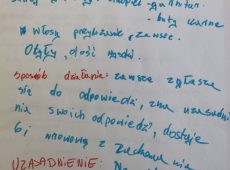 buty czarne
* Włosy przylizane, zawsze.
Otyły, dość wysoki.
sposób działania: zawsze zgłasza
się do odpowiedzi, zna uzasadnie
nia swoich odpowiedzi, dostaje
6, wzorową z zachowania
UZASADNIENIE: